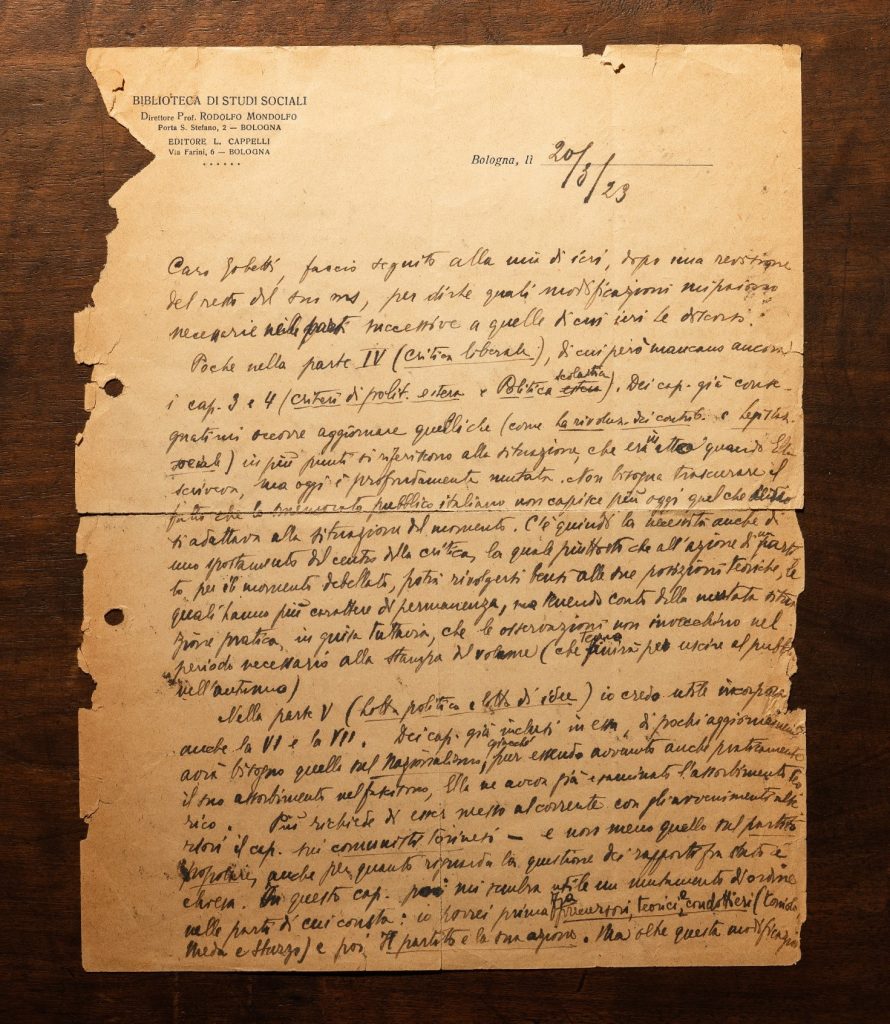 BIBLIOTECA DI STUDI SOCIALI
Direttore Prof. RODOLFO MONDOLFO
Porta S. Stefano, 2 — BOLOGNA
EDITORE L. CAPPELLI
Via Farini, 6 — BOLOGNA
Bologna, lì 20/3/23
Caro Gobetti, faccio seguito alla mia di ieri, dopo una revisione
del resto del suo ms, per dirle quali modificazioni mi paiono
necessarie nelle parti successive a quelle di cui ieri le discorsi.
Poche nella parte IV (critica liberale), di cui però mancano ancora
i cap. 3 e 4 (criteri di polit. estera e Politica scolastica). Dei cap. già conse-
gnatimi occorre aggiornare quelli che (come la rivoluz. dei contrib. e
) in più punti si riferiscono alla situazione, che era in atto quando Ella
scriveva, ma oggi è profondamente mutata. Non bisogna trascurare il
fatto che lo smemorato pubblico italiano non capisce più oggi quel che
si adattava alla situazione del momento. C'è quindi la necessità anche di
uno spostamento del centro della critica, la quale piuttosto che all'azione di un parti
to per il momento debellato, potrà rivolgersi bensì alle sue posizioni teoriche, le
quali hanno più carattere di permanenza, ma tenendo conto della mutata situa
zione pratica, in guisa tuttavia, che le osservazioni non invecchino nel
periodo necessario alla stampa del volume (che finirà per uscire al pubb
nell'autunno)
Nella parte V (Lotta politica e lotta di idee) io credo utile incorporar
anche la VI e la VII. Dei cap. già inclusi in essa, di pochi aggiornamenti
avrà bisogno quello sul nazionalismo, giacchè pur essendo avvenuto anche praticamente
il suo assorbimento nel fascismo, Ella ne aveva già esaminato l'assorbimento teo
rico. Più richiede di esser messo al corrente con gli avvenimenti ulte
riori il cap. sui comunisti torinesi — e non meno quello sul partito
popolare, anche per quanto riguarda la questione dei rapporti fra stato e
chiesa. In questo cap. poi mi sembra utile un mutamento d'ordine
nelle parti di cui consta: io porrei prima precursori, teorici e condottieri (Toniolo
Meda e Sturzo) e poi Il partito e la sua azione. Ma oltre questa modificazion